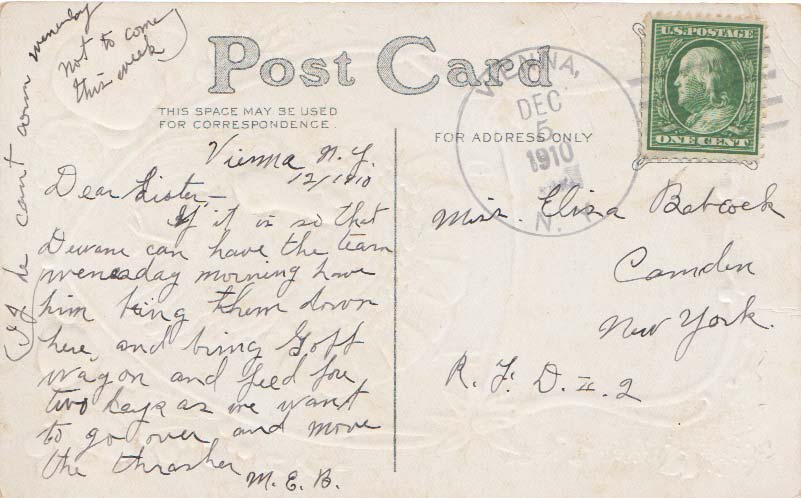 Post Card
THIS SPACE MAY BE USED
FOR CORRESPONDENCE.
FOR ADDRESS ONLY
U.S. POSTAGE
ONE CENT
VIENNA,
DEC
5
1910
N.
Vienna N. Y.
12/1910
Dear Sister—
If it is so that
Dewane can have the team
wenesday morning have
him bring them down
here, and bring Goff
wagon and feed for
two days as we want
to go over and move
the thrasher
M. E. B.
(If he cant com wenesday
not to come
this week)
Miss. Eliza Babcock
Camden
New York.
R. F. D. # 2